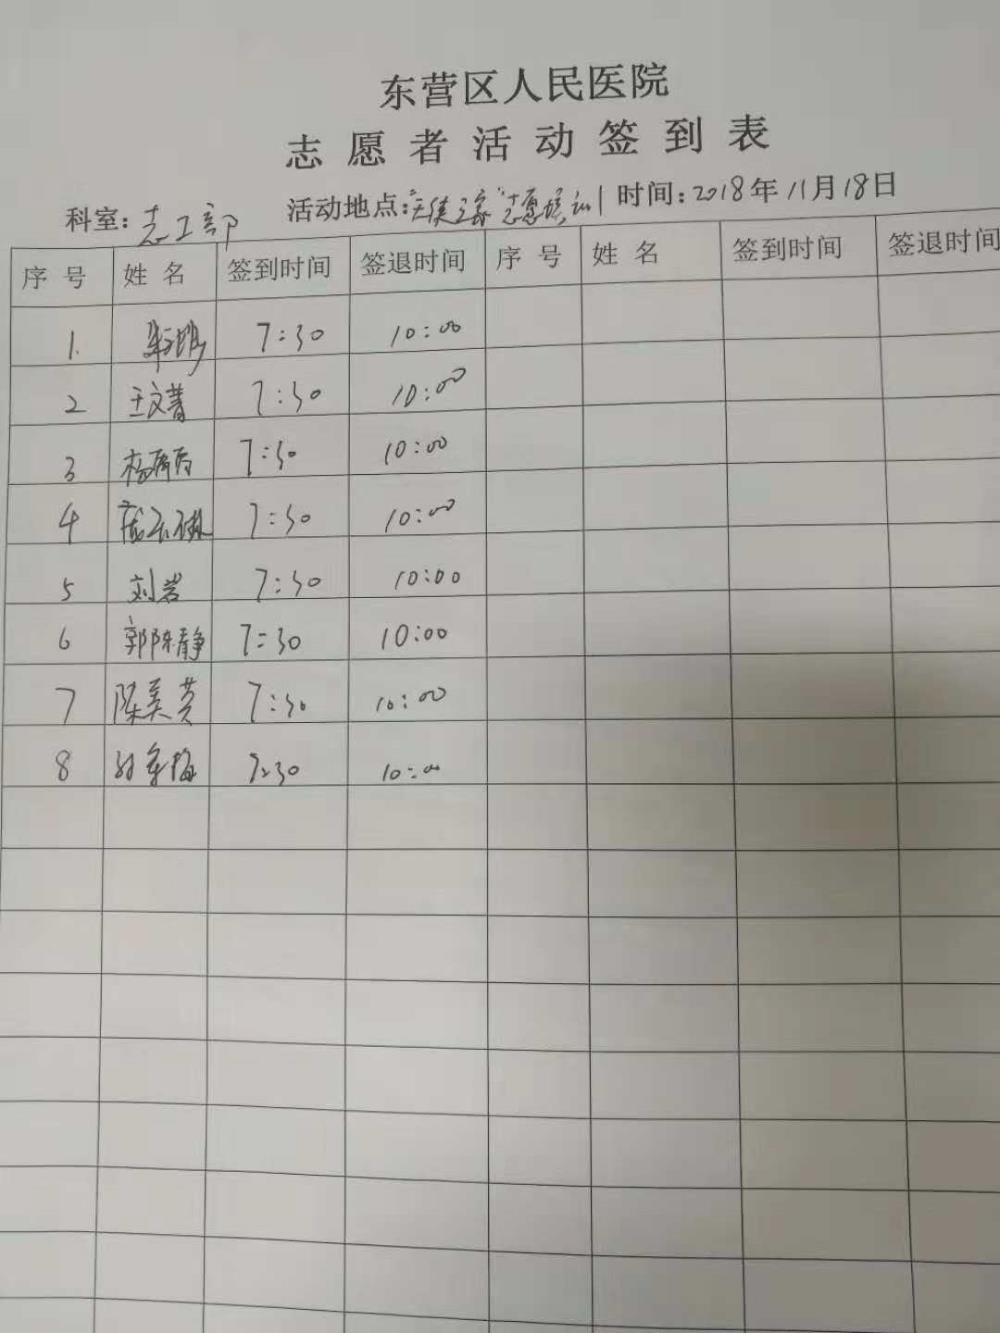 东营区人民医院
志愿者活动签到表
科室：志工部 活动地点：“天使之家”志愿培训 时间：2018年11月18日
序号 姓名 签到时间 签退时间 序号 姓名 签到时间 签退时间
1. 7:30 10:00
2 王文菁 7:30 10:00
3 7:30 10:00
4 7:30 10:00
5 刘岩 7:30 10:00
6 郭陈静 7:30 10:00
7 陈美英 7:30 10:00
8 7:30 10:00